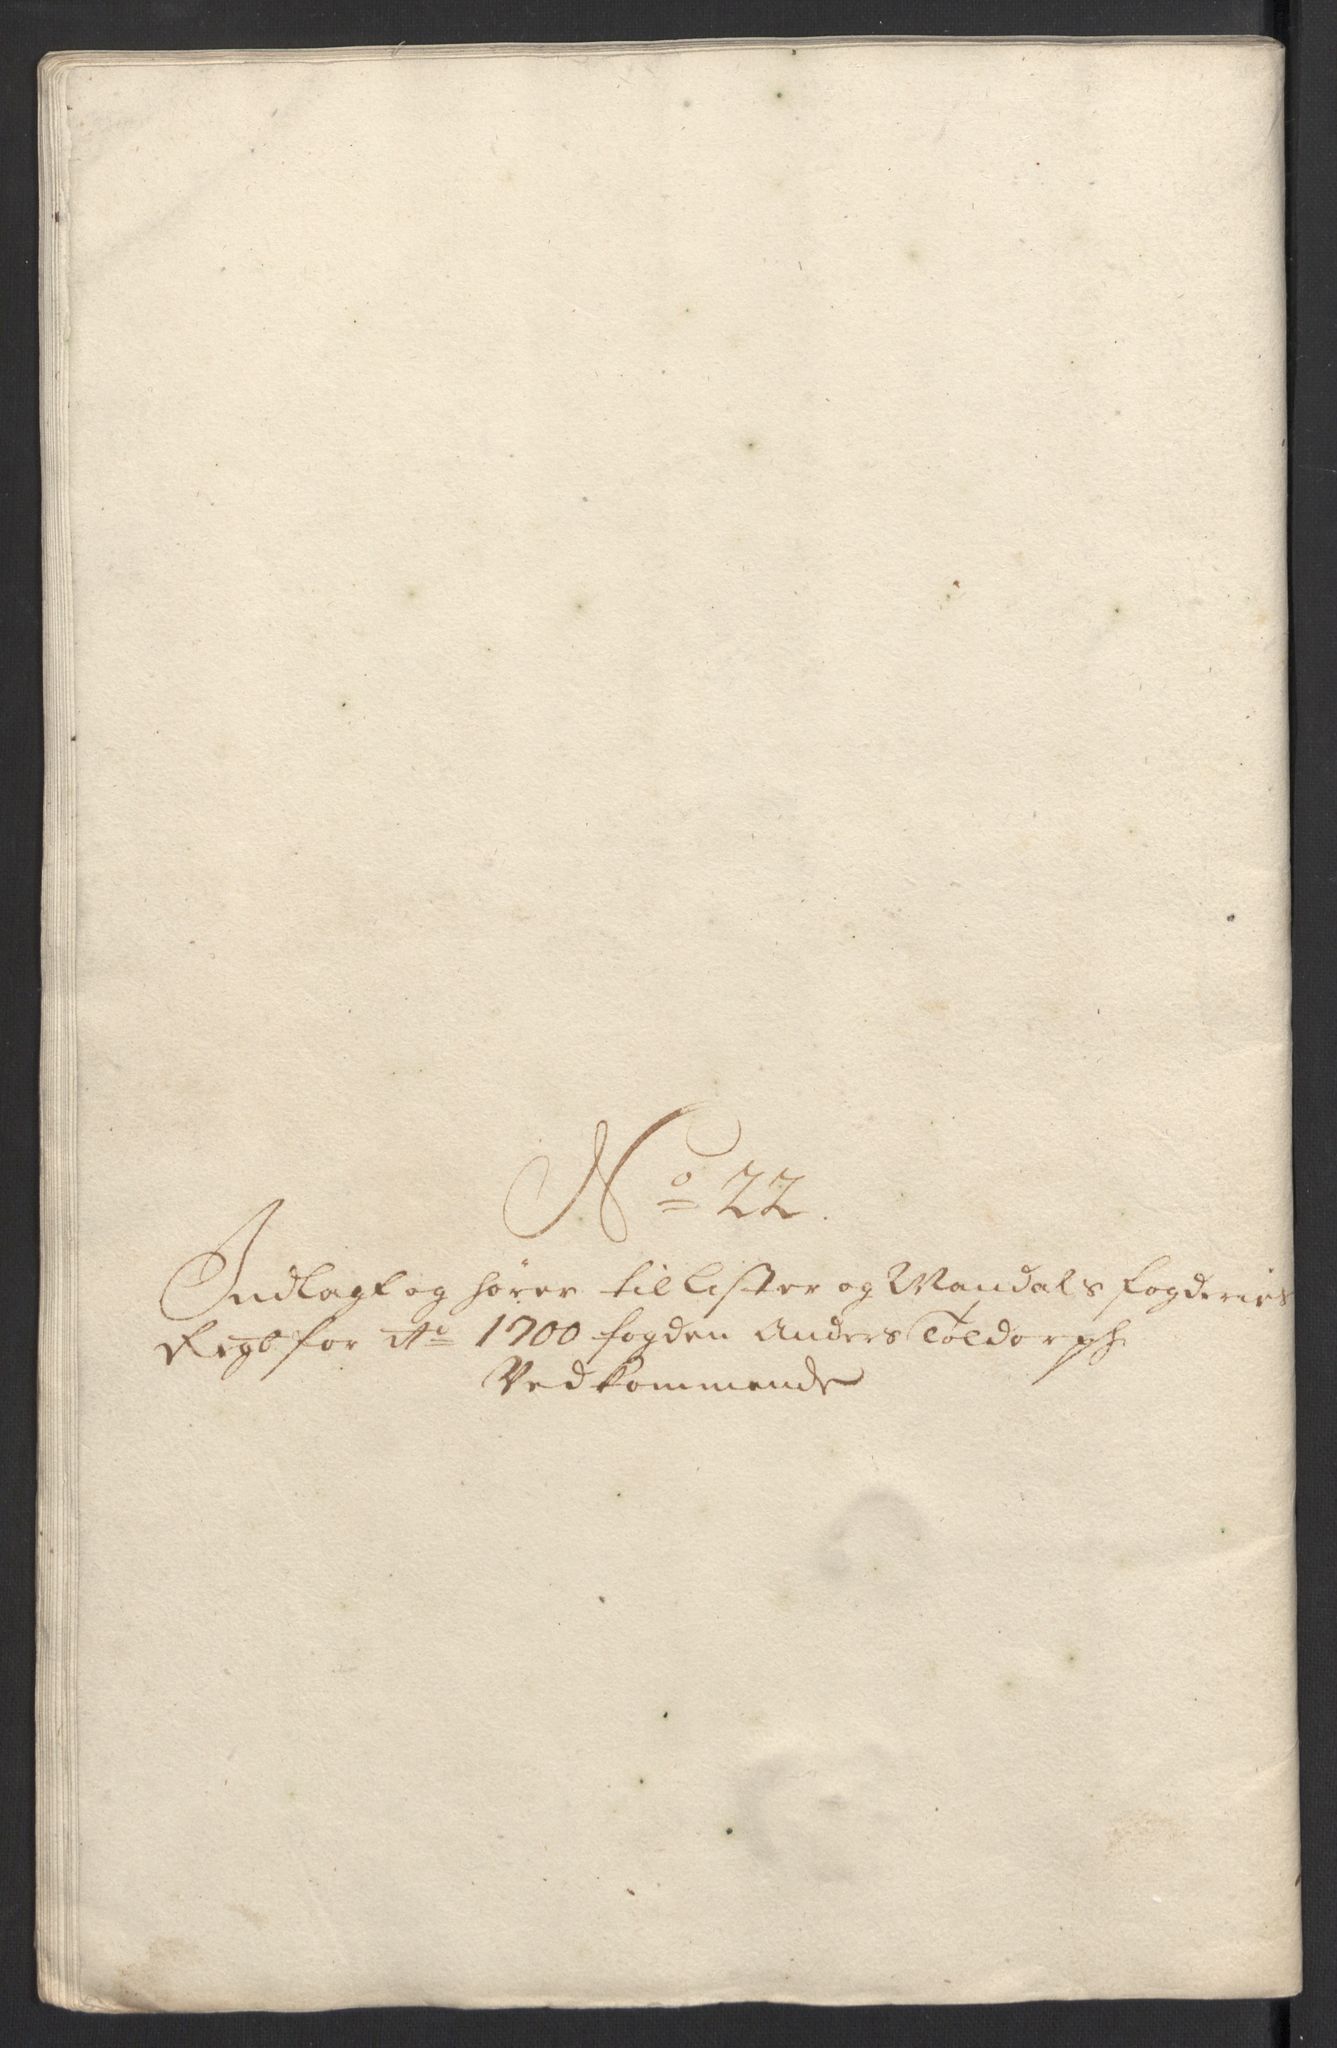 No 22.
Indlagt og hører til Lister og Mandals fogderies
Regb for Ao 1700 fogden Anders Toldorph
Vedkommende